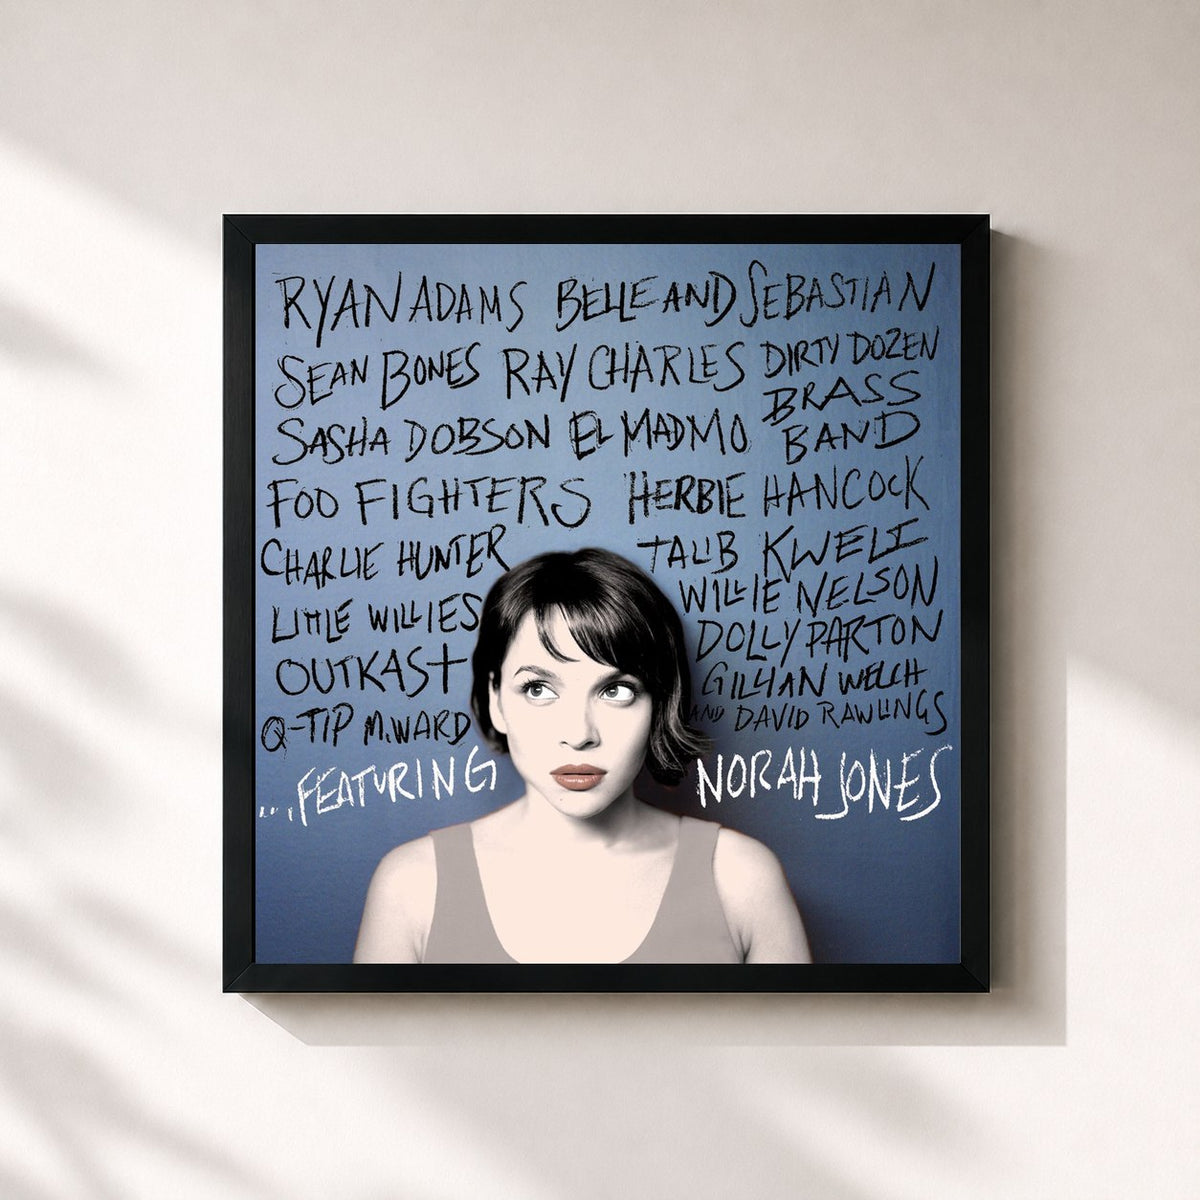 RYAN ADAMS BELLE AND SEBASTIAN
SEAN BONES RAY CHARLES DIRTY DOZEN
BRASS
SASHA DOBSON EL MADMO BAND
FOO FIGHTERS HERBIE HANCOCK
CHARLIE HUNTER TALIB KWELI
LITTLE WILLIES WILLIE NELSON
OUTKAST DOLLY PARTON
GILLIAN WELCH
Q-TIP M.WARD AND DAVID RAWLINGS
...FEATURING NORAH JONES